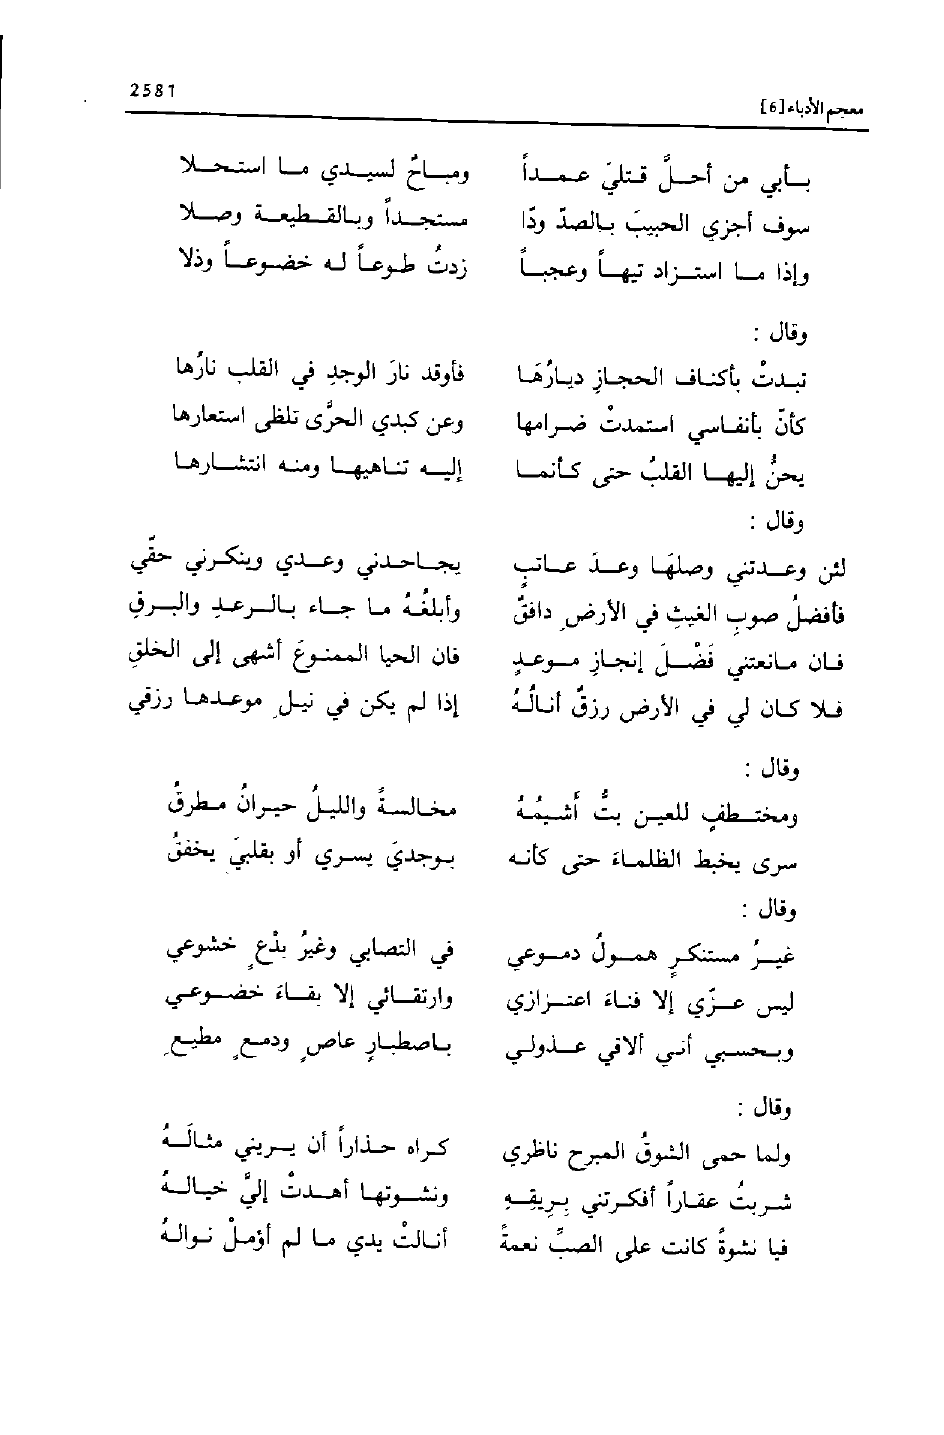 2581
معجم الأدباء [6]
بأبي من أحلَّ قتليَ عمداً ومباحٌ لسيدي ما استحلا
سوف أجزي الحبيبَ بالصدّ ودّا مستجداً وبالقطيعة وصلا
وإذا ما استزاد تيهاً وعجباً زدتُ طوعاً له خضوعاً وذلا
وقال :
تبدتْ بأكنافِ الحجازِ ديارُهَا فأوقد نارَ الوجدِ في القلب نارُها
كأنّ بأنفاسي استمدتْ ضرامها وعن كبدي الحرَّى تلظى استعارها
يحنُّ إليها القلبُ حتى كأنما إليه تناهيها ومنه انتشارها
وقال :
لئن وعدتني وصلَهَا وعدَ عاتبٍ يجاحدني وعدي وينكرني حقّي
فأفضلُ صوبِ الغيثِ في الأرضِ دافقٌ وأبلغُهُ ما جاء بالرعدِ والبرقِ
فان مانعتني فَضْلَ إنجازِ موعدٍ فان الحيا الممنوعَ أشهى إلى الخلقِ
فلا كان لي في الأرض رزقٌ أنالُهُ إذا لم يكن في نيلِ موعدها رزقي
وقال :
ومختطفٍ للعينِ بتُّ أشيمُهُ مخالسةً والليلُ حيرانُ مطرقُ
سرى يخبط الظلماءَ حتى كأنه بوجديَ يسري أو بقلبيَ يخفقُ
وقال :
غيرُ مستنكرٍ همولُ دموعي في التصابي وغيرُ بدْعٍ خشوعي
ليس عزّي إلا فناءَ اعتزازي وارتقائي إلا بقاءَ خضوعي
وبحسبي أني ألاقي عذولي باصطبارٍ عاصٍ ودمعٍ مطيعِ
وقال :
ولما حمى الشوقُ المبرح ناظري كراه حذاراً أن يريني مثالَهُ
شربتُ عقاراً أفكرتني بِرِيقِهِ ونشوتها أهدتْ إليَّ خيالهُ
فيا نشوةً كانت على الصبِّ نعمةً أنالتْ يدي ما لم أؤملْ نوالهُ